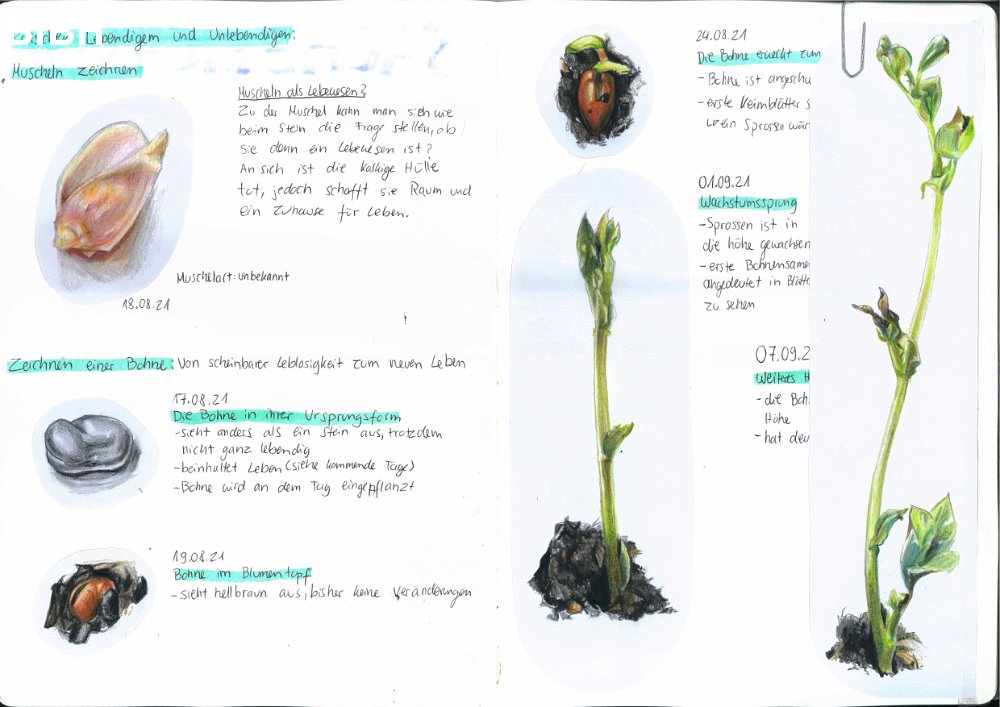 Lebendigem und Unlebendigen:
Muscheln zeichnen
Muscheln als Lebewesen?
Zu der Muschel kann man sich wie
beim Stein die Frage stellen, ob
sie denn ein Lebewesen ist?
An sich ist die kalkige Hülle
tot, jedoch schafft sie Raum und
ein Zuhause für Leben.
Muschelart: unbekannt
18.08.21
Zeichnen einer Bohne: Von scheinbarer Leblosigkeit zum neuen Leben
17.08.21
Die Bohne in ihrer Ursprungsform
- sieht anders als ein Stein aus, trotzdem
nicht ganz lebendig
- beinhaltet Leben (siehe kommende Tage)
- Bohne wird an dem Tag eingepflanzt
19.08.21
Bohne im Blumentopf
- sieht hellbraun aus, bisher keine Veränderungen
24.08.21
Die Bohne erweckt zum
- Bohne ist angeschw
- erste Keimblätter s
wein Sprossen wär
01.09.21
Wachstumssprung
- Sprossen ist in
die höhe gewachsen
- erste Bohnensamen
angedeutet in Blätte
zu sehen
07.09.2
Weiteres H
- die Boh
Höhe
- hat deu